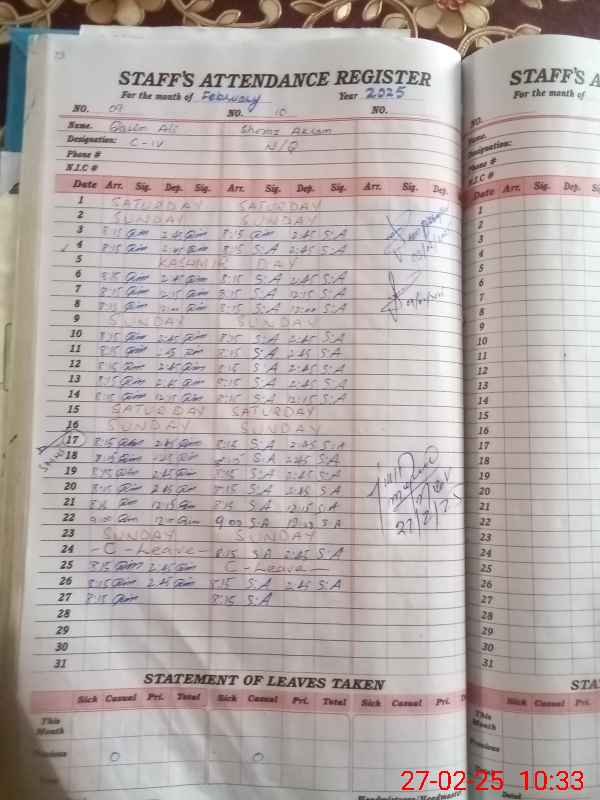 STAFF'S ATTENDANCE REGISTER
For the month of February Year 2025
NO. 09 NO. 10 NO.
Name. Qasim Ali
Designation: C-IV N/Q
Phone #
N.I.C #
Date Arr. Sig. Dep. Sig. Arr. Sig. Dep. Sig. Arr. Sig. Dep.
1 SATURDAY SATURDAY
2 SUNDAY SUNDAY
3 8:15 2:45 8:15 2:45 S:A
4 8:15 2:45 8:15 S:A 2:45 S:A
5 KASHMIR DAY
6 8:15 2:45 8:15 S:A 2:45 S:A
7 8:15 12:15 8:15 S:A 12:15 S:A
8 8:15 12:00 8:15 S:A 12:00 S:A
9 SUNDAY SUNDAY
10 8:15 2:45 8:15 S:A 2:45 S:A
11 8:15 2:45 8:15 S:A 2:45 S:A
12 8:15 2:45 8:15 S:A 2:45 S:A
13 8:15 2:45 8:15 S:A 2:45 S:A
14 8:15 12:15 8:15 S:A 12:15 S:A
15 SATURDAY SATURDAY
16 SUNDAY SUNDAY
17 8:15 2:45 8:15 S:A 2:45 S:A
18 8:15 2:45 8:15 S:A 2:45 S:A
19 8:15 2:45 8:15 S:A 2:45 S:A
20 8:15 2:45 8:15 S:A 2:45 S:A
21 8:15 12:15 8:15 S:A 12:15 S:A
22 9:00 12:00 9:00 S:A S:A
27/2/25
23 SUNDAY SUNDAY
24 -C-Leave- 8:15 S:A 2:45 S:A
25 8:15 2:45 C-Leave-
26 8:15 2:45 8:15 S:A 2:45 S:A
27 8:15 8:15 S:A
28
29
30
31
STATEMENT OF LEAVES TAKEN
Sick Casual Pri. Total Sick Casual Pri. Total Sick Casual Pri.
This Month
0 0
STAFF'S A
For the month of
NO.
Name.
Designation:
Phone #
N.I.C #
Date Arr. Sig. Dep.
1
2
3
4
5
6
7
8
9
10
11
12
13
14
15
16
17
18
19
20
21
22
23
24
25
26
27
28
29
30
31
STA
Sick Casual Pri.
This Month
27-02-25 10:33